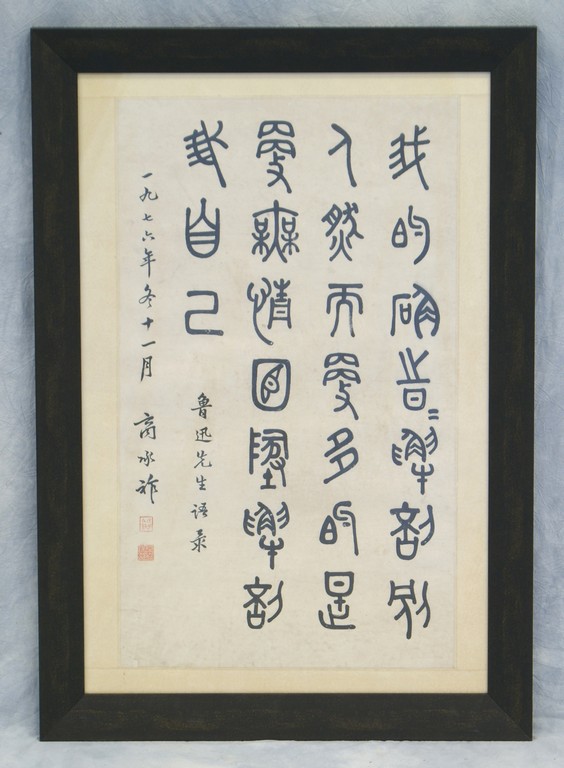 我的确旹=解剖别
人然而更多的是
更無情面墬解剖
我自己
鲁迅先生语录
一九七六年冬十一月 商承祚